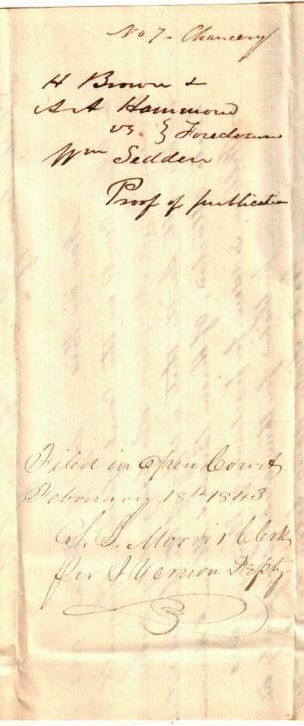 No 7 - Chancery
H Brown &
A A Hammond
vs. } Foreclosure
Wm Sedden
Proof of publication
Filed in Open Court
February 18th 1843
Morris Clerk
per J Vernon Depty